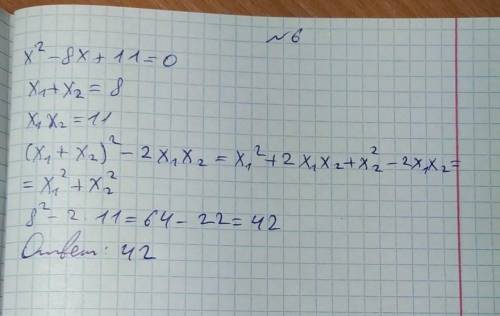 №6
x² - 8x + 11 = 0
x₁ + x₂ = 8
x₁ x₂ = 11
(x₁ + x₂)² - 2x₁x₂ = x₁² + 2x₁x₂ + x₂² - 2x₁x₂ =
= x₁² + x₂²
8² - 2 11 = 64 - 22 = 42
Ответ: 42